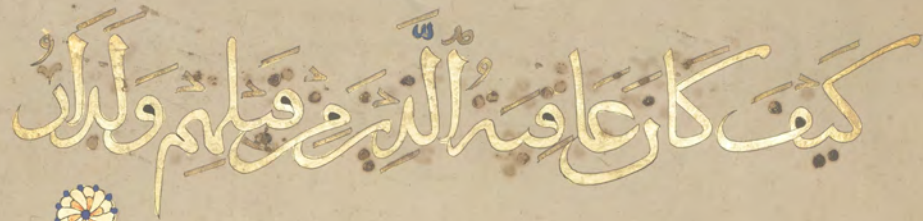 كَيْفَ كَانَ عَاقِبَةُ ٱلَّذِينَ مِن قَبْلِهِمْ وَلَدَارُ